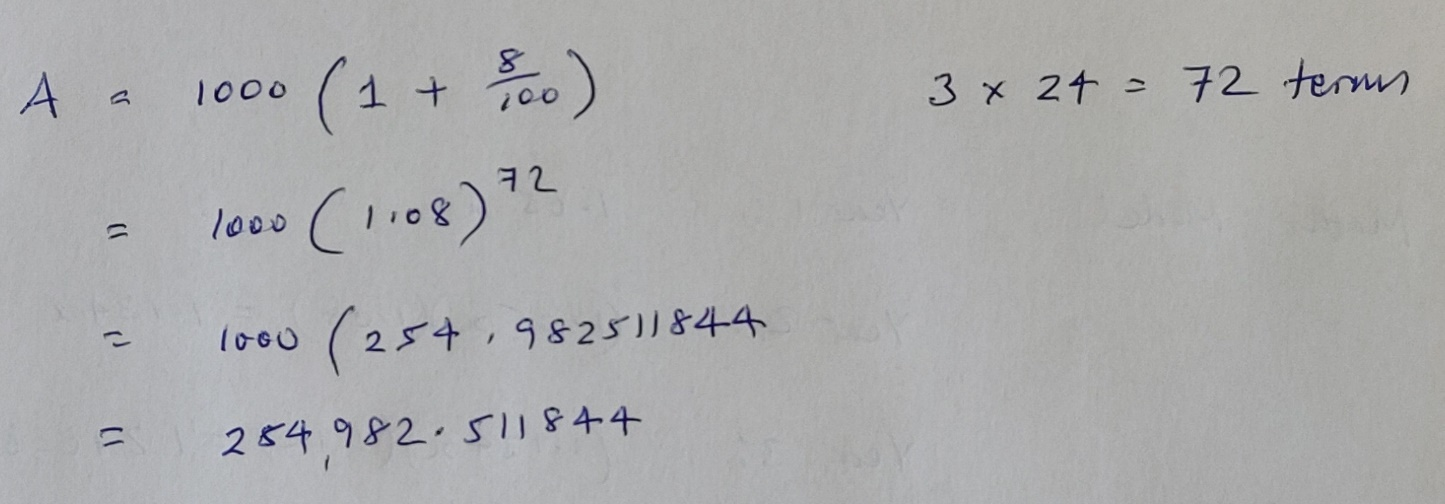 A = 1000 (1 + 8/100) 3 × 24 = 72 terms
= 1000 (1.08)^72
= 1000 (254.982511844
= 254,982.511844